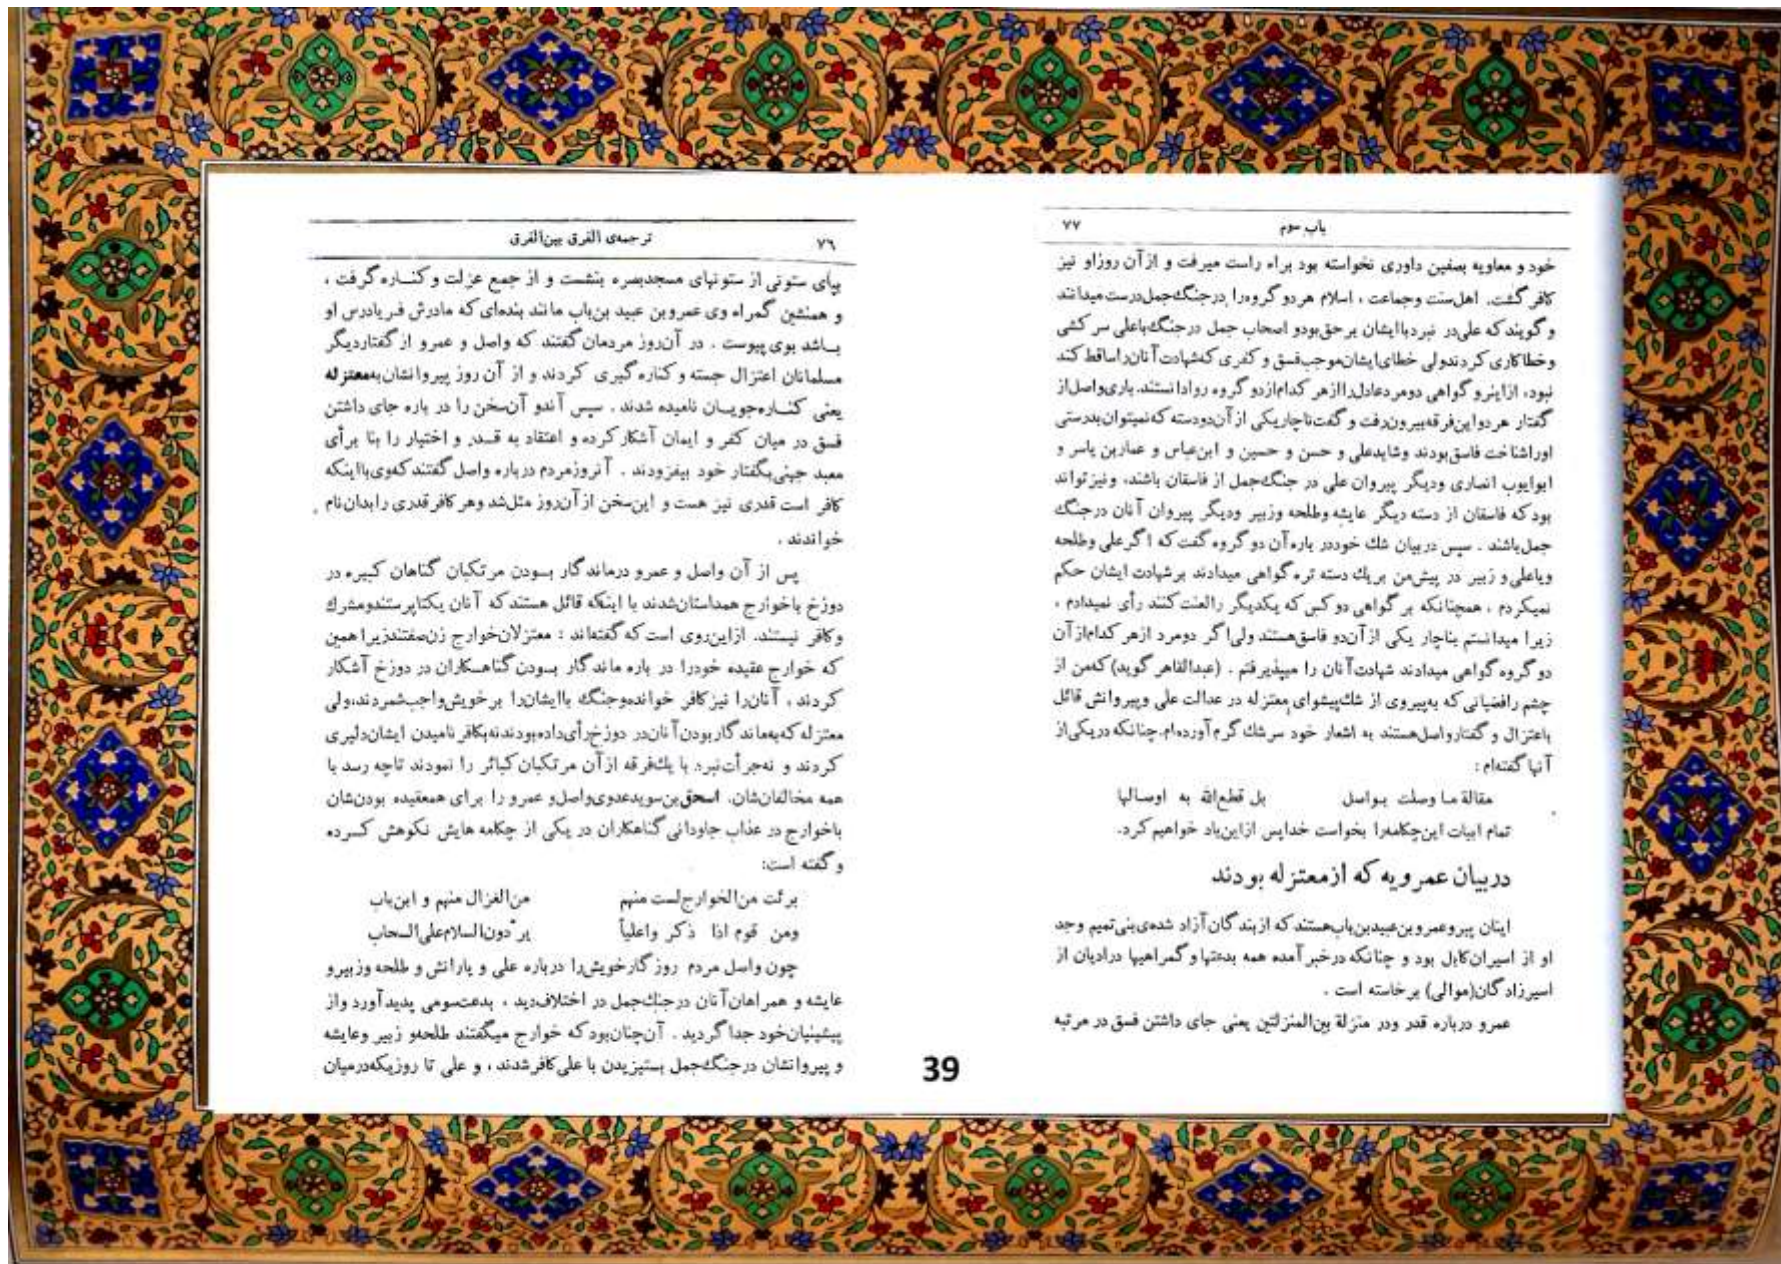 ترجمه‌ی الفرق بین‌الفرق ۷۶
بپای ستونی از ستونهای مسجدبصره بنشست و از جمع عزلت و کناره گرفت ،
و همنشین گمراه وی عمروبن عبید بن‌باب مانند بنده‌ای که مادرش فریادرس او
باشد بوی پیوست . در آن‌روز مردمان گفتند که واصل و عمرو از گفتاردیگر
مسلمانان اعتزال جسته و کناره گیری کردند و از آن روز پیروانشان‌به‌معتزله
یعنی کناره‌جویان نامیده شدند . سپس آندو آن‌سخن را در باره جای داشتن
فسق در میان کفر و ایمان آشکار کرده و اعتقاد به قدر و اختیار را بنا برأی
معبد جهنی‌بگفتار خود بیفزودند . آنروزمردم درباره واصل گفتندکه‌وی‌بااینکه
کافر است قدری نیز هست و این‌سخن از آن‌روز مثل‌شد وهر کافرقدری رابدان‌نام
خواندند .
پس از آن واصل و عمرو درماندگار بودن مرتکبان گناهان کبیره در
دوزخ باخوارج همداستان‌شدند با اینکه قائل هستندکه آنان یکتاپرستندومشرك
وکافر نیستند. ازاین‌روی است که گفته‌اند : معتزلان‌خوارج زن‌صفتندزیراهمین
که خوارج عقیده خودرا در باره ماندگار بودن گناهکاران در دوزخ آشکار
کردند ، آنان‌را نیزکافر خوانده‌وجنگ باایشان‌را برخویش‌واجب‌شمردند،ولی
معتزله که‌به‌ماندگاربودن‌آنان‌در دوزخ‌رأی‌داده‌بودندنه‌بکافرنامیدن ایشان‌دلیری
کردند و نه‌جرأت‌نبرد با یك‌فرقه ازآن مرتکبان‌کبائر را نمودند تاچه رسد با
همه مخالفان‌شان. اسحق‌بن‌سویدعدوی‌واصل‌و عمرو را برای همعقیده بودن‌شان
باخوارج در عذاب جاودانی گناهکاران در یکی از چکامه هایش نکوهش کرده
و گفته است:
برئت من‌الخوارج‌لست منهم من‌الغزال منهم و ابن‌باب
ومن قوم اذا ذکر واعلیاً یردّون‌السلام‌علی‌السحاب
چون واصل مردم روزگارخویش‌را درباره علی و یارانش و طلحه وزبیرو
عایشه و همراهان‌آنان درجنك‌جمل در اختلاف‌دید ، بدعت‌سومی پدیدآورد واز
پیشینیان‌خود جداگردید . آن‌چنان‌بودکه خوارج میگفتند طلحه‌و زبیر وعایشه
و پیروانشان درجنگ‌جمل بستیزیدن با علی‌کافرشدند ، و علی تا روزیکه‌درمیان
باب سوم ۷۷
خود و معاویه بصفین داوری نخواسته بود براه راست میرفت و ازآن روزاو نیز
کافر گشت. اهل‌سنت وجماعت ، اسلام هردو گروه‌را درجنگ‌جمل‌درست‌میدانند
و گویندکه علی‌در نبردباایشان برحق‌بودو اصحاب جمل درجنگ‌باعلی سرکشی
وخطاکاری کردندولی خطای‌ایشان‌موجب‌فسق و کفری که‌شهادت‌آنان‌راساقط کند
نبود، ازاینرو گواهی دومردعادل‌راازهر کدام‌ازدو گروه روادانستند. باری‌واصل‌از
گفتار هردواین‌فرقه‌بیرون‌رفت و گفت‌ناچاریکی ازآن‌دودسته که‌نمیتوان‌بدرستی
اوراشناخت فاسق‌بودند وشایدعلی و حسن و حسین و ابن‌عباس و عماربن یاسر و
ابوایوب انصاری ودیگر پیروان علی در جنگ‌جمل از فاسقان باشند، ونیزتواند
بودکه فاسقان از دسته دیگر عایشه وطلحه وزبیر ودیگر پیروان آنان درجنگ
جمل‌باشند . سپس دربیان شك خوددر باره‌آن دو گروه گفت‌که اگرعلی وطلحه
ویاعلی‌و زبیر در پیش‌من بریك دسته تره گواهی میدادند برشهادت ایشان حکم
نمیکردم ، همچنانکه بر گواهی دو کس که یکدیگر رالعنت‌کنند رأی نمیدادم ،
زیرا میدانستم بناچار یکی ازآن‌دو فاسق‌هستند ولی‌اگر دومرد ازهر کدام‌ازآن
دو گروه گواهی میدادند شهادت‌آنان را میپذیرفتم . (عبدالقاهر گوید) که‌من از
چشم رافضیانی که به‌پیروی از شك‌پیشوای معتزله در عدالت علی وپیروانش قائل
باعتزال و گفتارواصل‌هستند به اشعار خود سرشك گرم آورده‌ام.چنانکه دریکی‌از
آنها گفته‌ام :
مقالة ما وصلت بواصل بل قطع‌الله به اوصالها
تمام ابیات این‌چکامه‌را بخواست خداپس ازاین‌یاد خواهیم کرد.
دربیان عمرویه که ازمعتزله بودند
اینان پیروعمروبن‌عبیدبن‌باب‌هستندکه ازبندگان‌آزاد شده‌ی‌بنی‌تمیم وجد
او از اسیران‌کابل بود و چنانکه درخبر آمده همه بدعتها و گمراهیها درادیان از
اسیرزادگان(موالی) برخاسته است .
عمرو درباره قدر ودر منزلة بین‌المنزلتین یعنی جای داشتن فسق در مرتبه
39